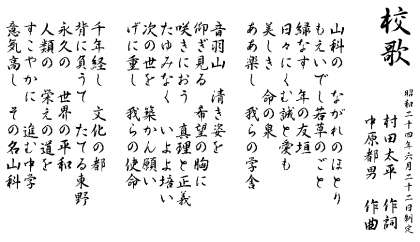 校歌
昭和二十四年六月二十二日制定
村田太平　作詞
中原都男　作曲
山科の　ながれのほとり
もえいでし若草のごと
緑なす　年の友垣
日々にくむ誠と愛も
美しき　命の泉
ああ楽し　我らの学舎
音羽山　清き姿を
仰ぎ見る　希望の胸に
咲きにおう　真理と正義
たゆみなく　いよよ培い
次の世を　築かん願い
げに重し　我らの使命
千年経し　文化の都
背に負うて　たてる東野
永久の　世界の平和
人類の　栄えの道を
すこやかに　進む中学
意気高し　その名山科